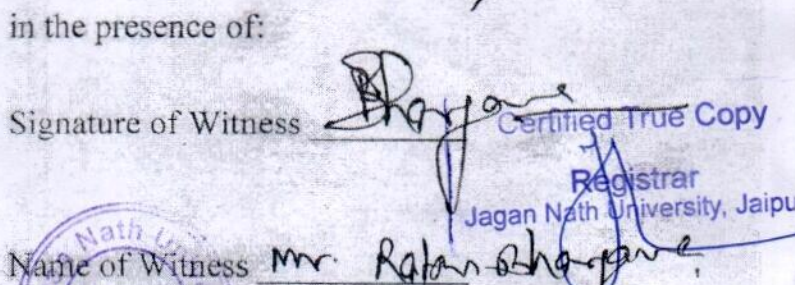 in the presence of:
Signature of Witness Bhargava
Certified True Copy
Registrar
Jagan Nath University, Jaipu
Nath U
Name of Witness Mr. Ratan Bhargava